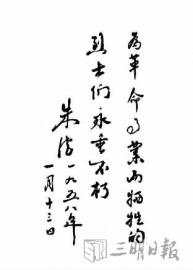 为革命事业而牺牲的
烈士们永垂不朽
朱德
一九五八年
一月十三日
三明日报